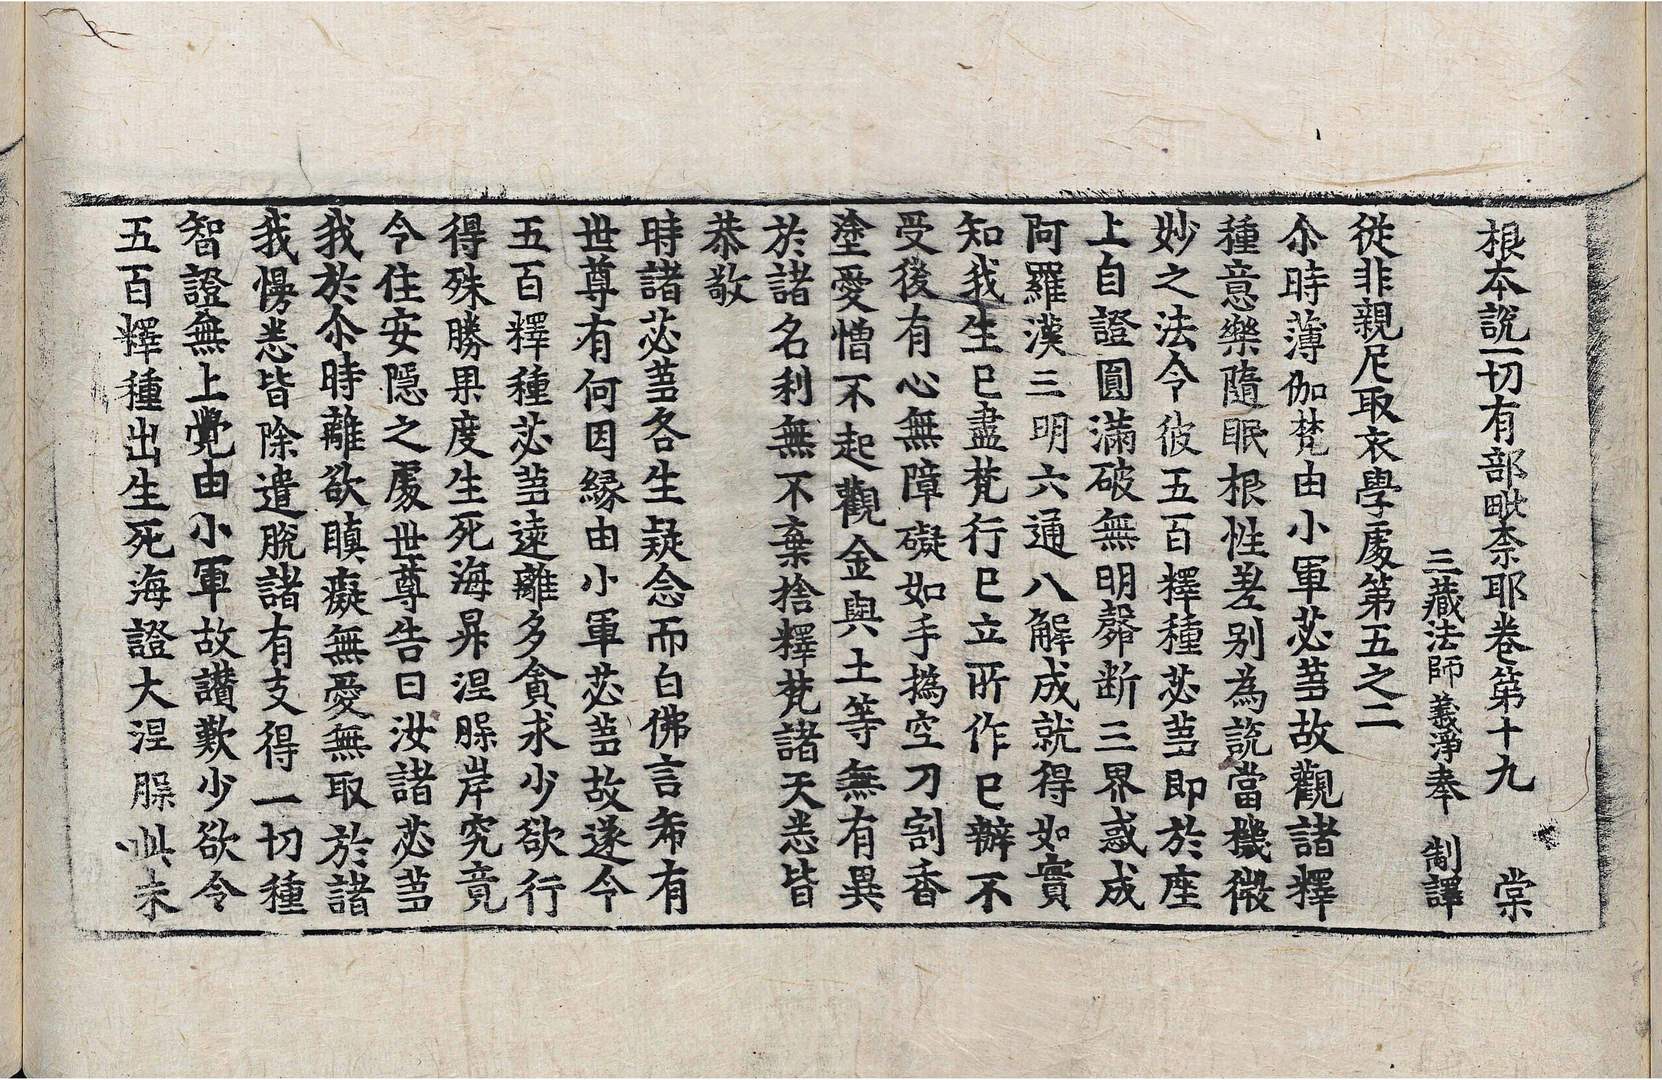 根本說一切有部毗柰耶卷第十九 棠
三藏法師義淨奉 制譯
從非親尼取衣學處第五之二
尒時薄伽梵由小軍苾芻故觀諸釋
種意樂隨眠根性差别為說當機微
妙之法令彼五百釋種苾芻即於座
上自證圓滿破無明㲉斷三界惑成
阿羅漢三明六通八解成就得如實
知我生已盡梵行已立所作已辦不
受後有心無障礙如手撝空刀割香
塗愛憎不起觀金與土等無有異
於諸名利無不棄捨釋梵諸天悉皆
恭敬
時諸苾芻各生疑念而白佛言希有
世尊有何因緣由小軍苾芻故遂令
五百釋種苾芻遠離多貪求少欲行
得殊勝果度生死海昇涅槃岸究竟
令住安隱之處世尊告曰汝諸苾芻
我於尒時離欲瞋癡無憂無取於諸
我慢悉皆除遣脫諸有支得一切種
智證無上覺由小軍故讚歎少欲令
五百釋種出生死海證大涅槃此未